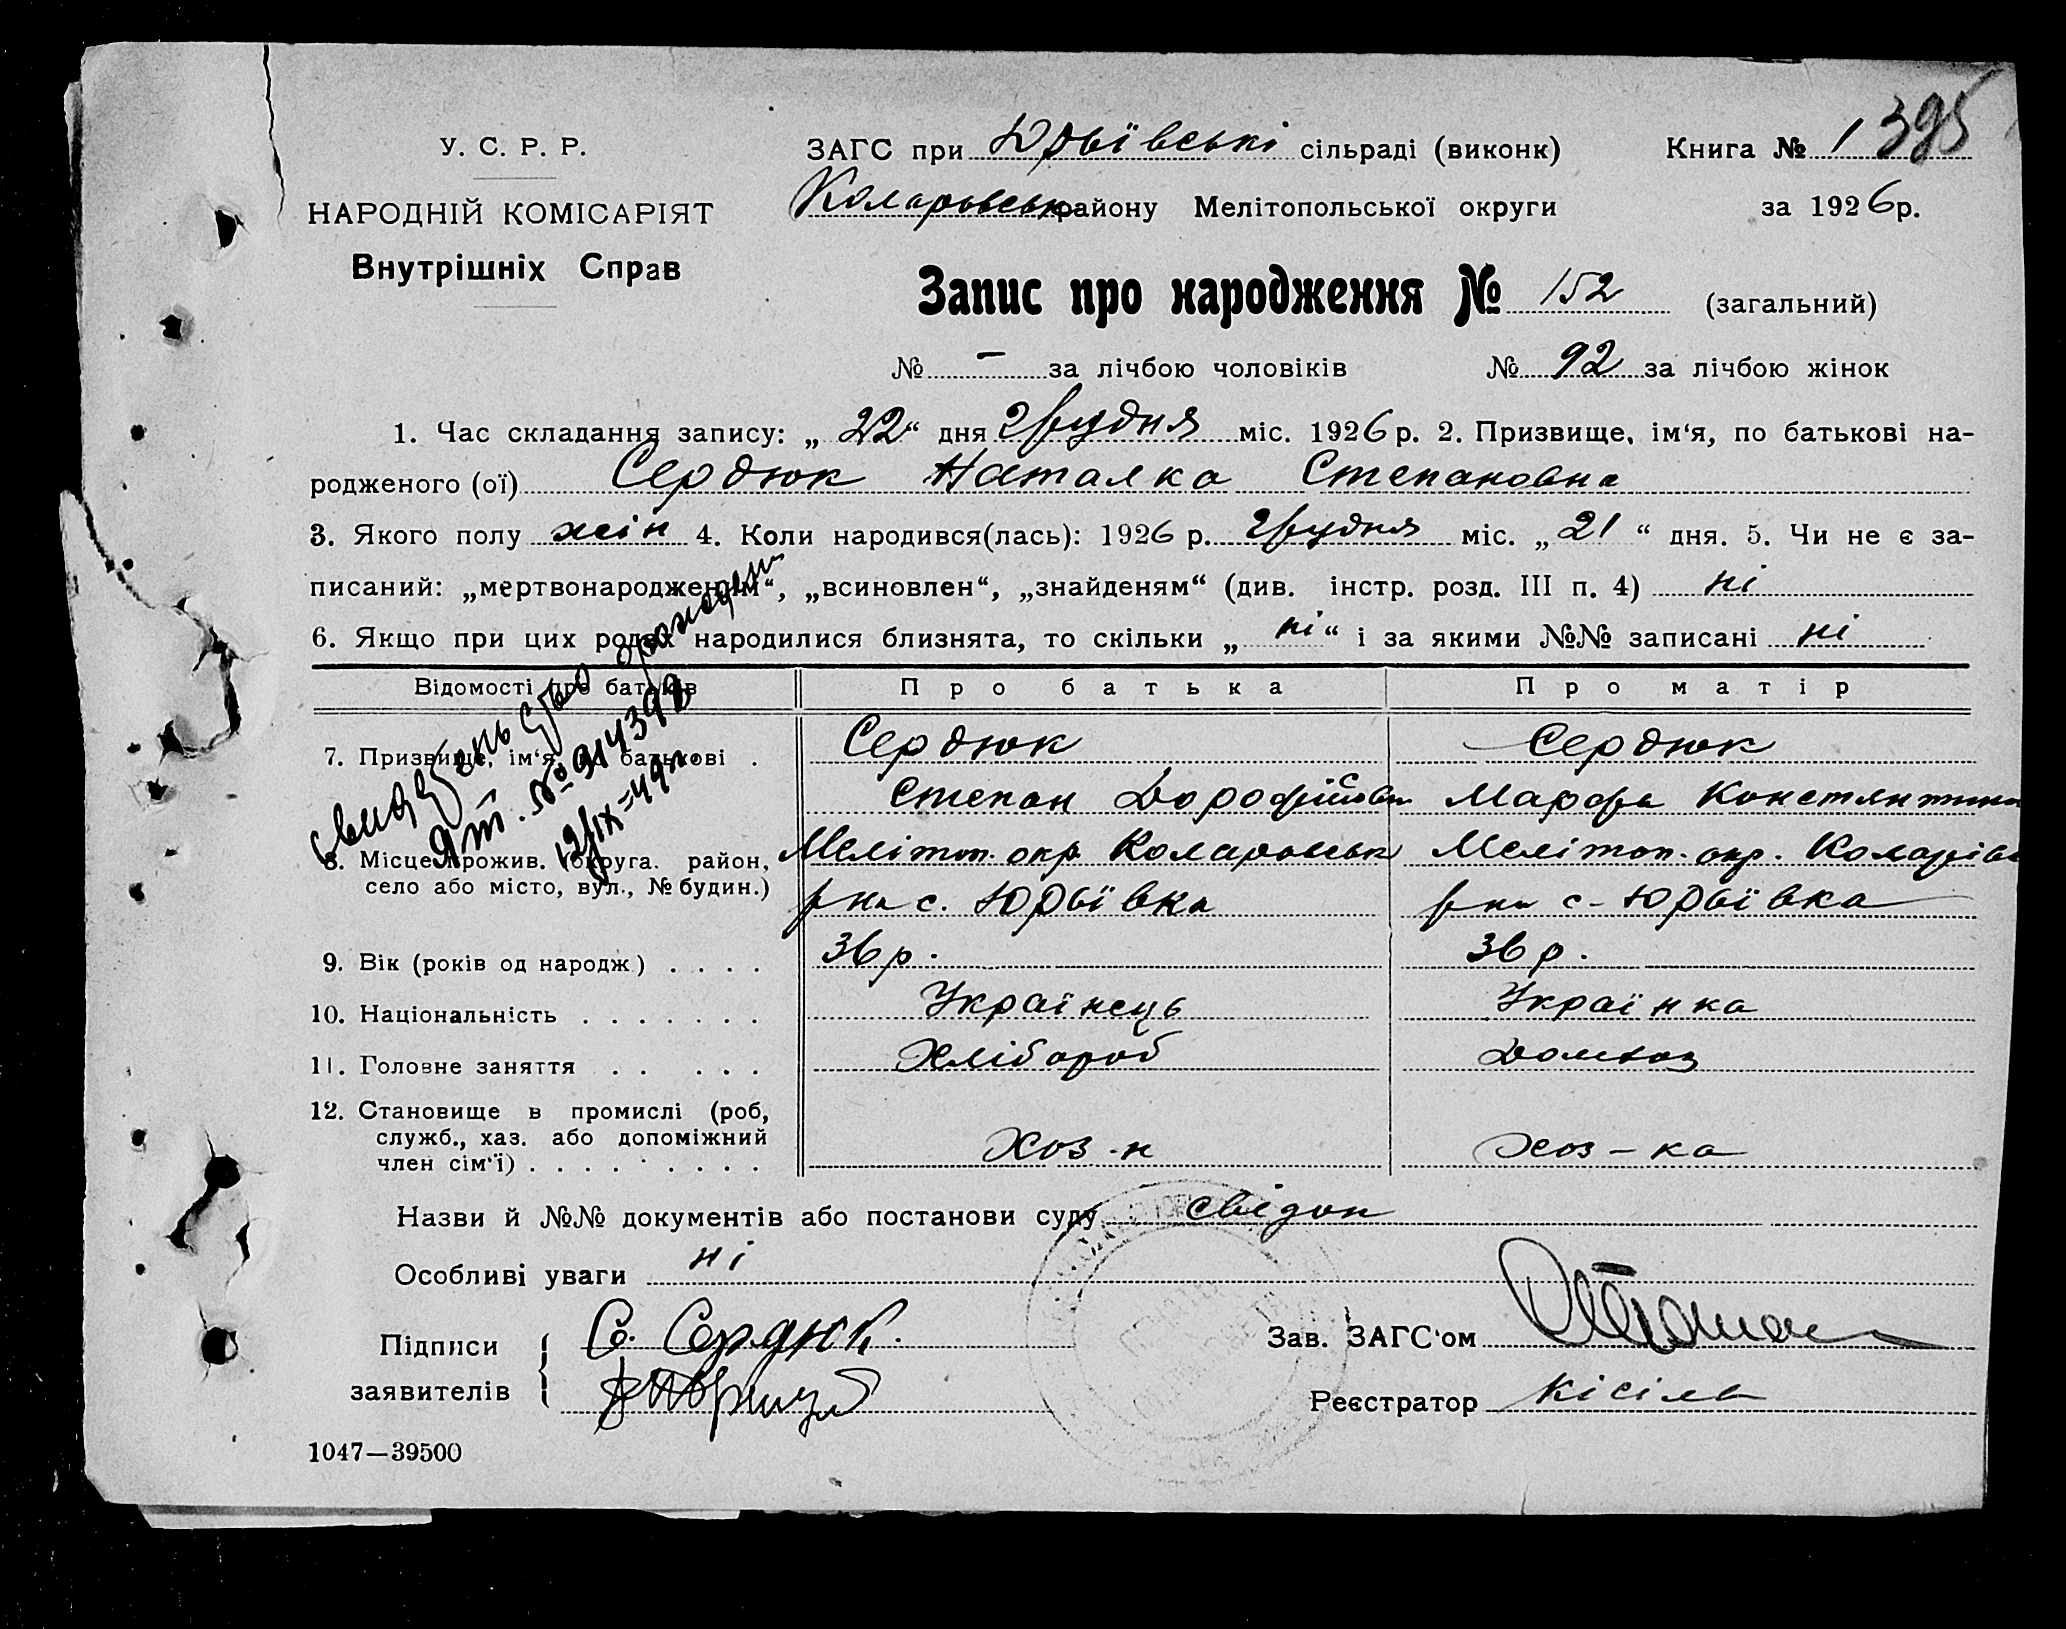 395
У. С. Р. Р.
НАРОДНІЙ КОМІСАРІЯТ
Внутрішніх Справ
ЗАГС при Юрьївські сільраді (виконк) Книга № 1
Коларовськ району Мелітопольської округи за 1926 р.
Запис про народження № 152 (загальний)
№ – за лічбою чоловіків № 92 за лічбою жінок
1. Час складання запису: „22“ дня Грудня міс. 1926 р. 2. Призвище, ім‘я, по батькові на-
родженого (ої) Сердюк Наталка Степановна
3. Якого полу жін 4. Коли народився(лась): 1926 р. Грудня міс. „21“ дня. 5. Чи не є за-
писаний: „мертвонародженим“, „всиновлен“, „знайденям“ (див. інстр. розд. III п. 4) ні
6. Якщо при цих родах народилися близнята, то скільки „ні“ і за якими №№ записані ні
Відомості про батьків Про батька Про матір
7. Призвище, ім‘я, по батькові . Сердюк Сердюк
Степан Дорофійов Марфа Константин
8. Місце прожив. (округа. район, Мелітоп. окр. Коларовськ Мелітоп. окр. Коларівс
село або місто, вул., № будин.) р-на с. Юрьївка р-на с-Юрьївка
9. Вік (років од народж) . . . . 36 р. 36 р.
10. Національність . . . . . . . Українець Українка
11. Головне заняття . . . . . Хлібороб Домхоз
12. Становище в промислі (роб,
служб., хаз. або допоміжний
член сім‘ї) . . . . . . . . . Хоз-н хоз-ка
№ 914392
12/IX-49 г.
Назви й №№ документів або постанови суду свідок
Особливі уваги ні
Підписи заявителів С. Сердюк.
Зав. ЗАГС‘ом
Реєстратор Кісіль
1047—39500